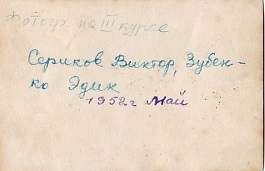 Фотогр на III курсе
Сериков Виктор, Зубен-
ко Эдик
1952г Май